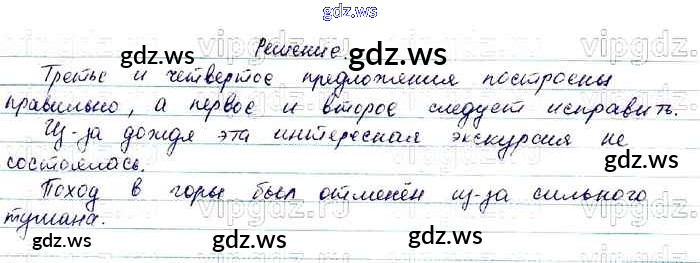 gdz.ws
Решение.
gdz.ws
gdz.ws
Третье и четвертое предложения построены
правильно, а первое и второе следует исправить.
Из-за дождя эта интересная экскурсия не
состоялась.
Поход в горы был отменён из-за сильного
тумана.
gdz.ws
gdz.ws
vipgdz.ru